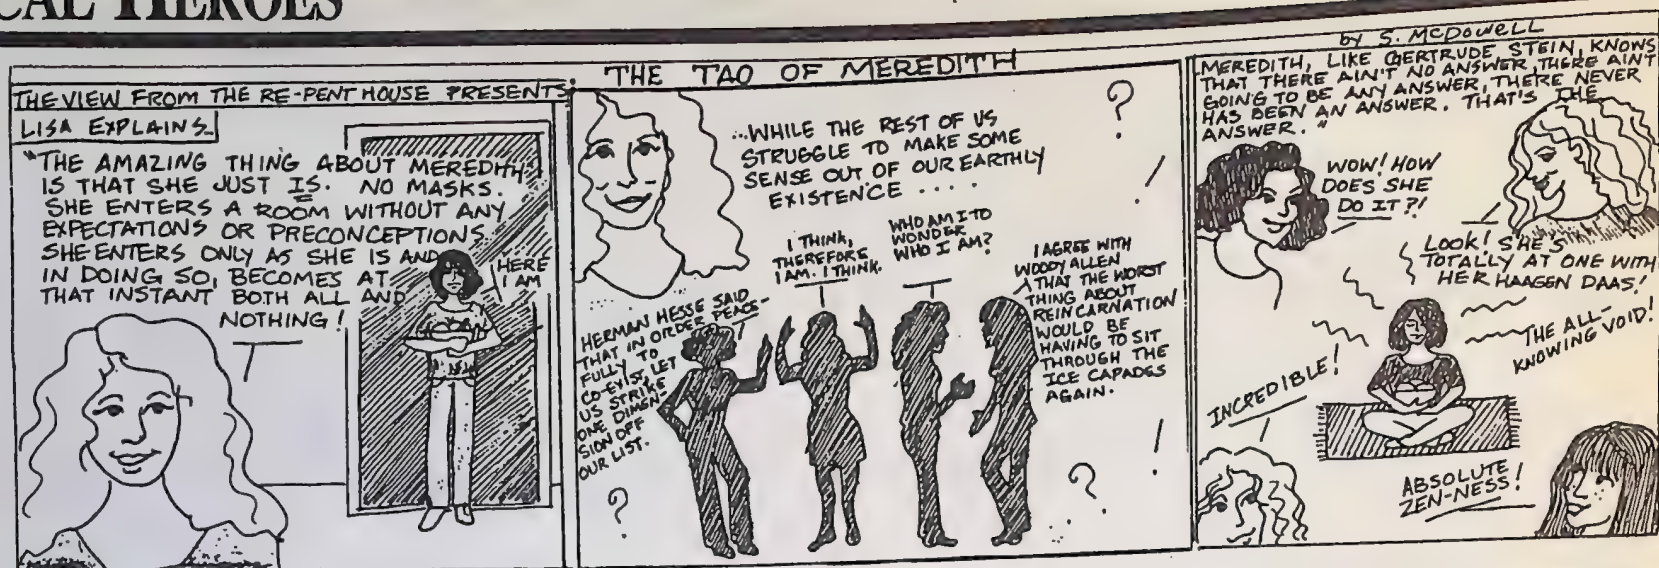 CAL HEROES
by S. MCDOWELL
THE TAO OF MEREDITH
THE VIEW FROM THE RE-PENT HOUSE PRESENTS:
LISA EXPLAINS
"THE AMAZING THING ABOUT MEREDITH
IS THAT SHE JUST IS. NO MASKS.
SHE ENTERS A ROOM WITHOUT ANY
EXPECTATIONS OR PRECONCEPTIONS.
SHE ENTERS ONLY AS SHE IS AND
IN DOING SO, BECOMES AT
THAT INSTANT BOTH ALL AND
NOTHING!
HERE
I AM
...WHILE THE REST OF US
STRUGGLE TO MAKE SOME
SENSE OUT OF OUR EARTHLY
EXISTENCE ....
?
!
HERMAN HESSE SAID
THAT IN ORDER PEACE-
FULLY TO
CO-EXIST, LET
US STRIKE
ONE DIMEN-
SION OFF
OUR LIST.
I THINK,
THEREFORE
I AM. I THINK.
WHO AM I TO
WONDER
WHO I AM?
I AGREE WITH
WOODY ALLEN
THAT THE WORST
THING ABOUT
REINCARNATION
WOULD BE
HAVING TO SIT
THROUGH THE
ICE CAPADES
AGAIN.
?
?
!
MEREDITH, LIKE GERTRUDE STEIN, KNOWS
THAT THERE AIN'T NO ANSWER, THERE AINT
GOING TO BE ANY ANSWER, THERE NEVER
HAS BEEN AN ANSWER. THAT'S THE
ANSWER."
WOW! HOW
DOES SHE
DO IT?!
LOOK! SHE'S
TOTALLY AT ONE WITH
HER HAAGEN DAAS!
THE ALL-
KNOWING VOID!
INCREDIBLE!
ABSOLUTE
ZEN-NESS!